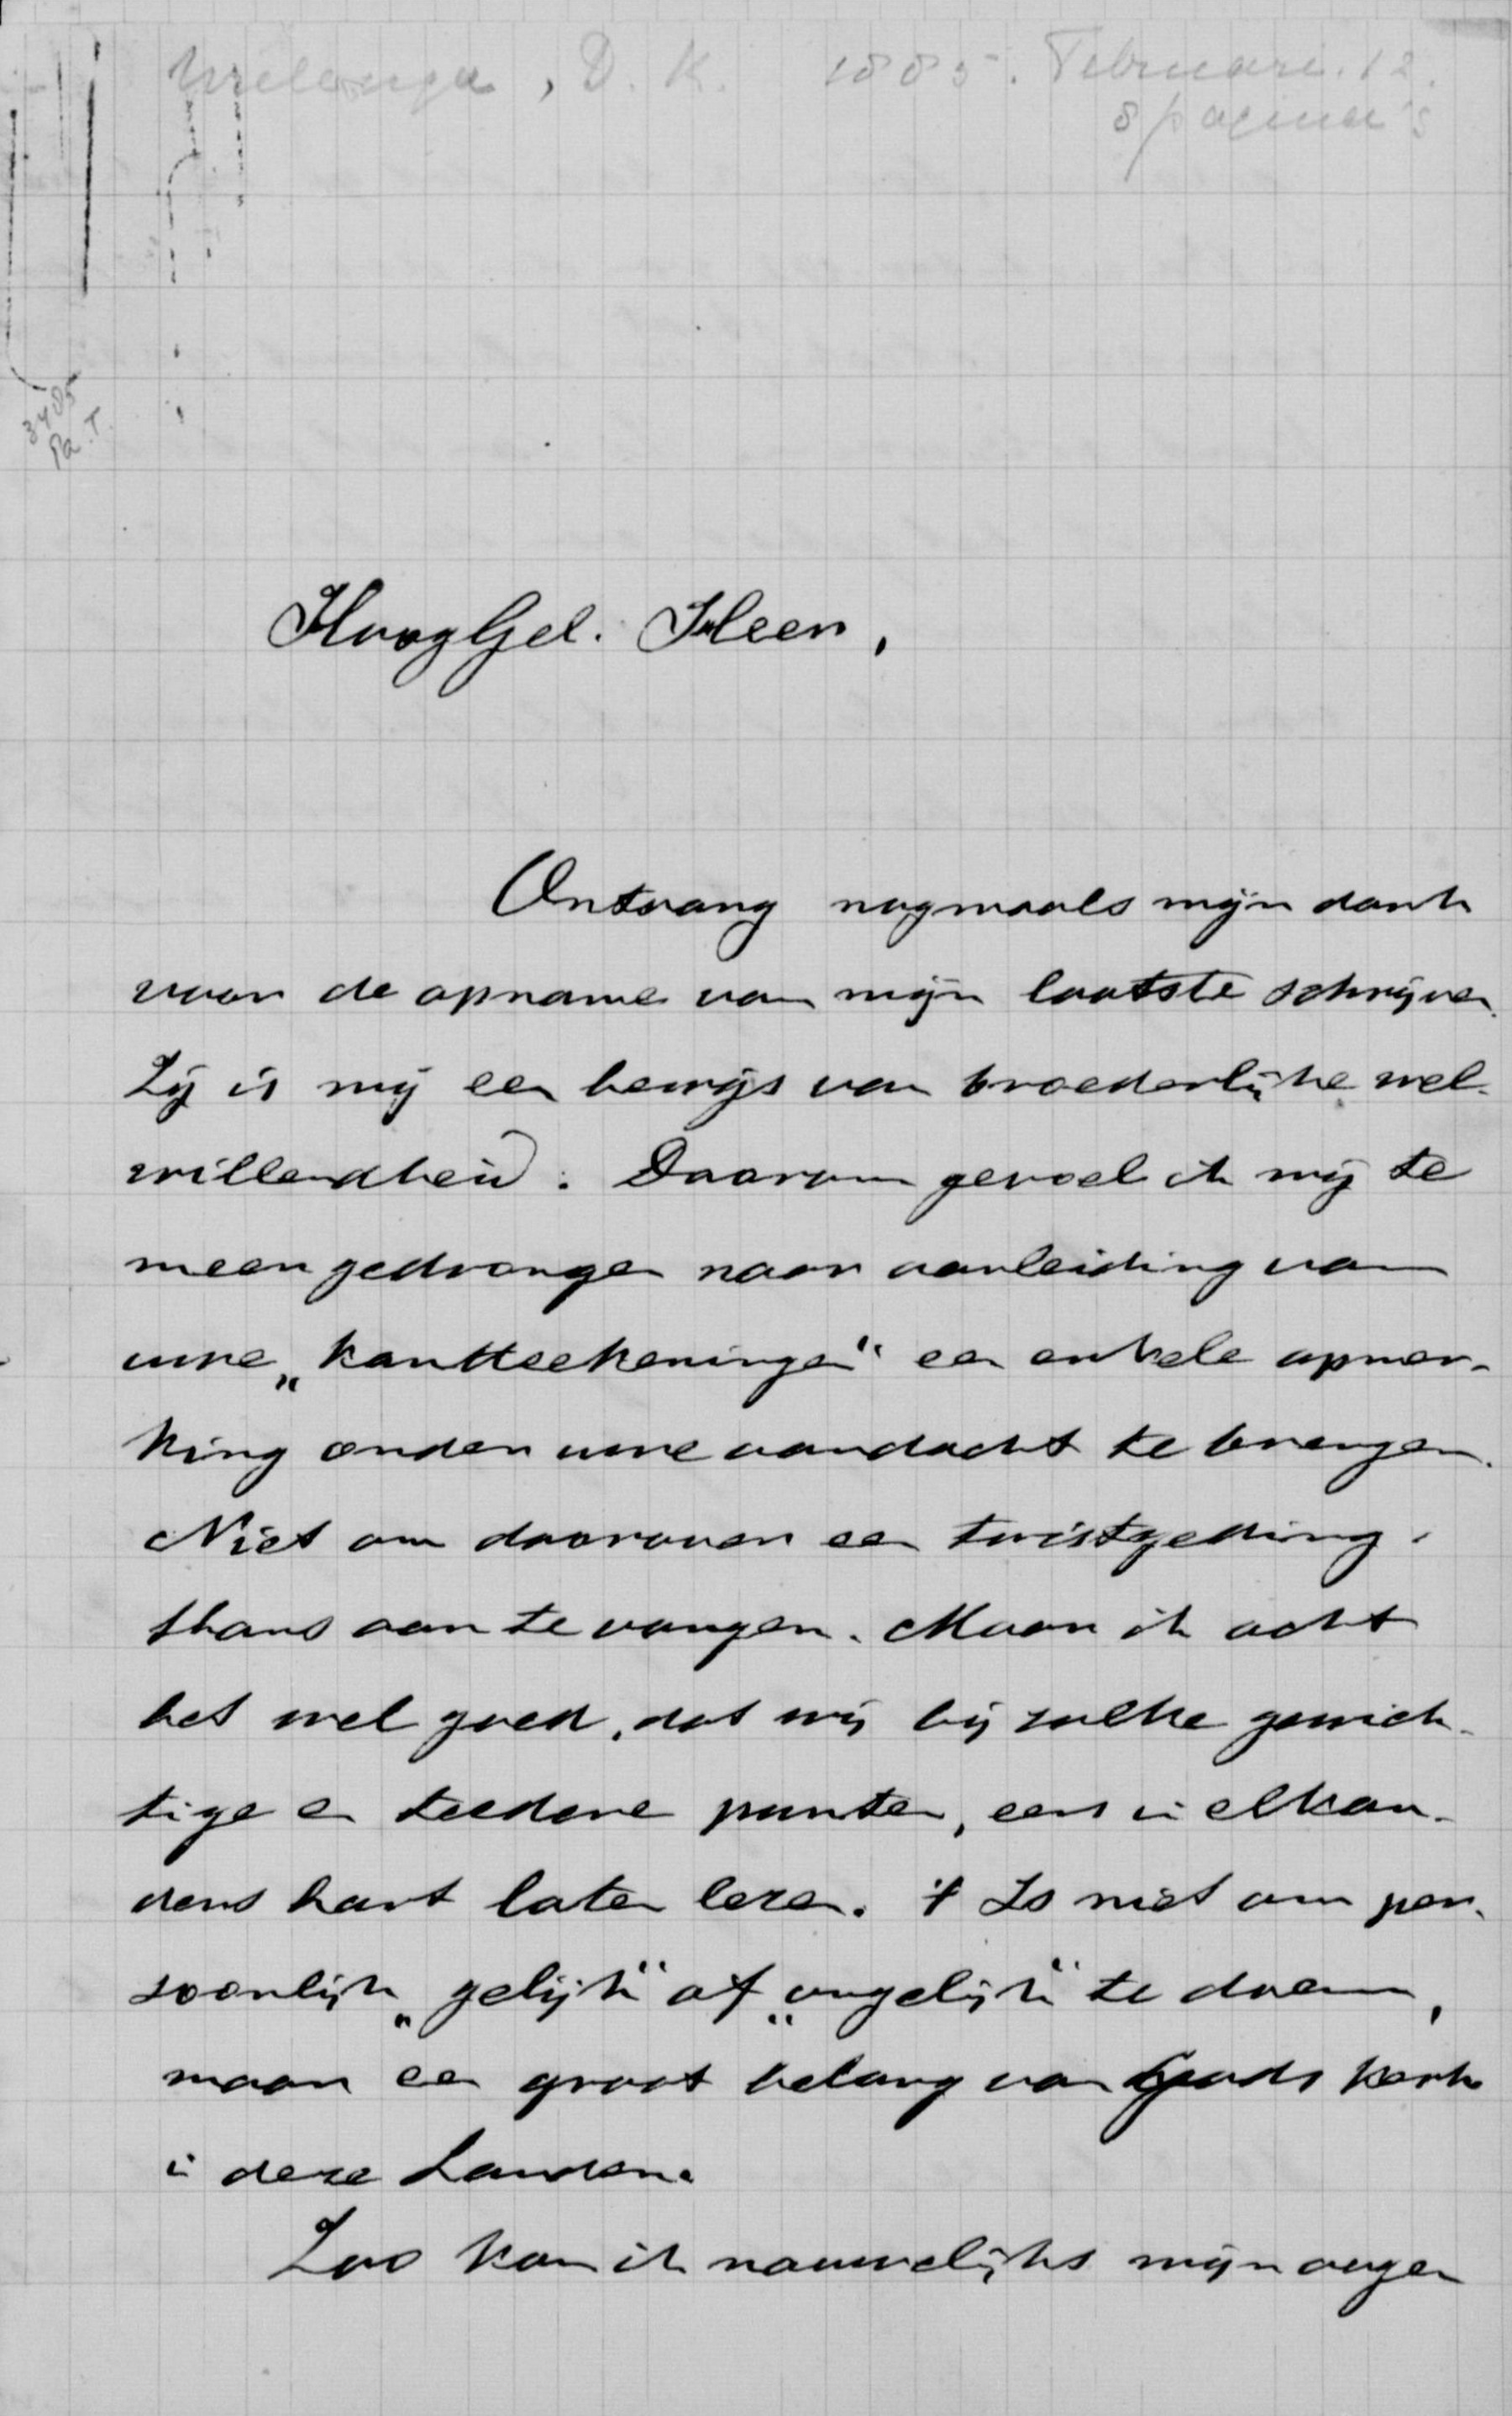 Wielenga, D. K. 1885. Februari. 12.
8 pagina's
3485
Pa. T.
HoogGel. Heer,
Ontvang nogmaals mijn dank
voor de opname van mijn laatste schrijven.
Zij is mij een bewijs van broederlijke wel-
willendheid. Daarom gevoel ik mij te
meer gedrongen naar aanleiding van
uwe „kantteekeningen" een enkele opmer-
king onder uwe aandacht te brengen.
Niet om daarover een twistgeding
thans aan te vangen. Maar ik acht
het wel goed, dat wij bij zulke gewich-
tige en teedere punten, eens in elkan-
ders hart laten lezen. 't Is niet om per-
soonlijk „gelijk" of „ongelijk" te doen,
maar een groot belang van Gods kerk
in deze Landen.
Zoo kon ik nauwelijks mijn oogen